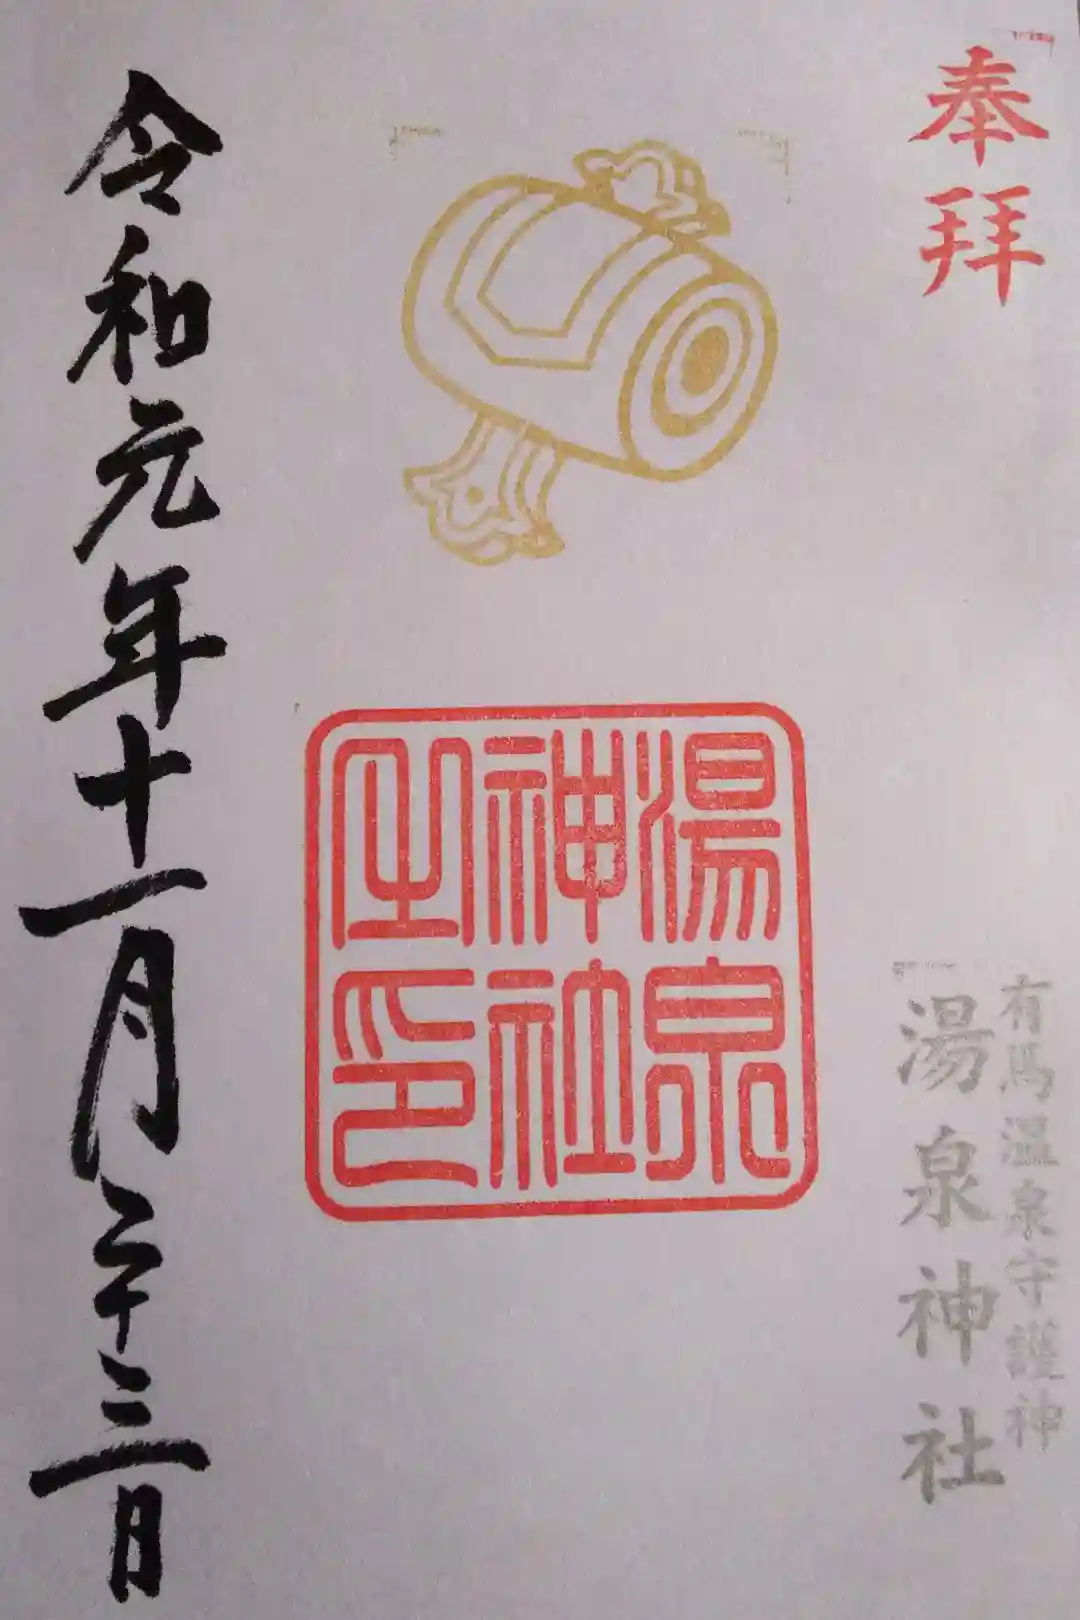 奉拝
有馬温泉守護神
湯泉神社
湯泉
神社
之印
令和元年十一月二十三日